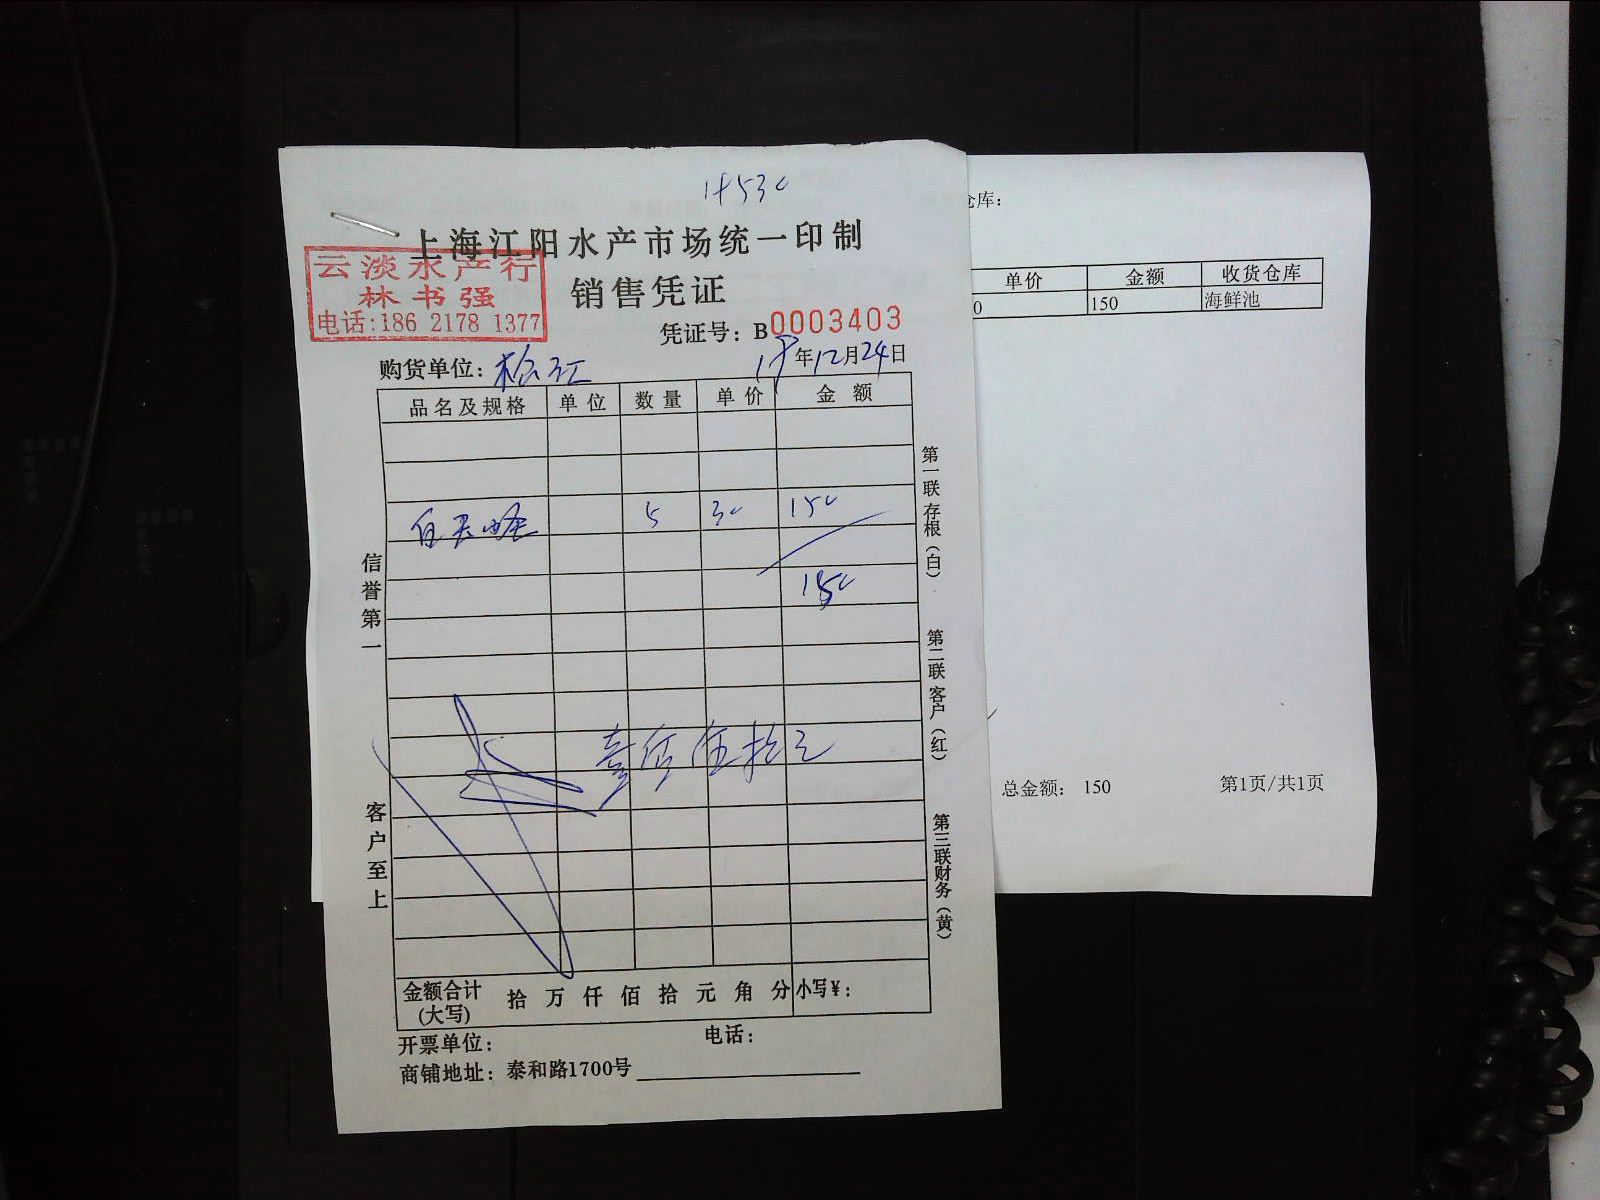 18530
上海江阳水产市场统一印制
云淡水产行
林书强
电话:186 2178 1377
销售凭证
凭证号: B0003403
购货单位: 松江
18年12月24日
品名及规格 单位 数量 单价 金额
5 30 150
150
壹佰伍拾元
信誉第一
客户至上
第一联存根(白)
第二联客户(红)
第三联财务(黄)
金额合计(大写) 拾 万 仟 佰 拾 元 角 分 小写¥:
开票单位: 电话:
商铺地址: 泰和路1700号
仓库:
单价 金额 收货仓库
0 150 海鲜池
总金额: 150 第1页/共1页